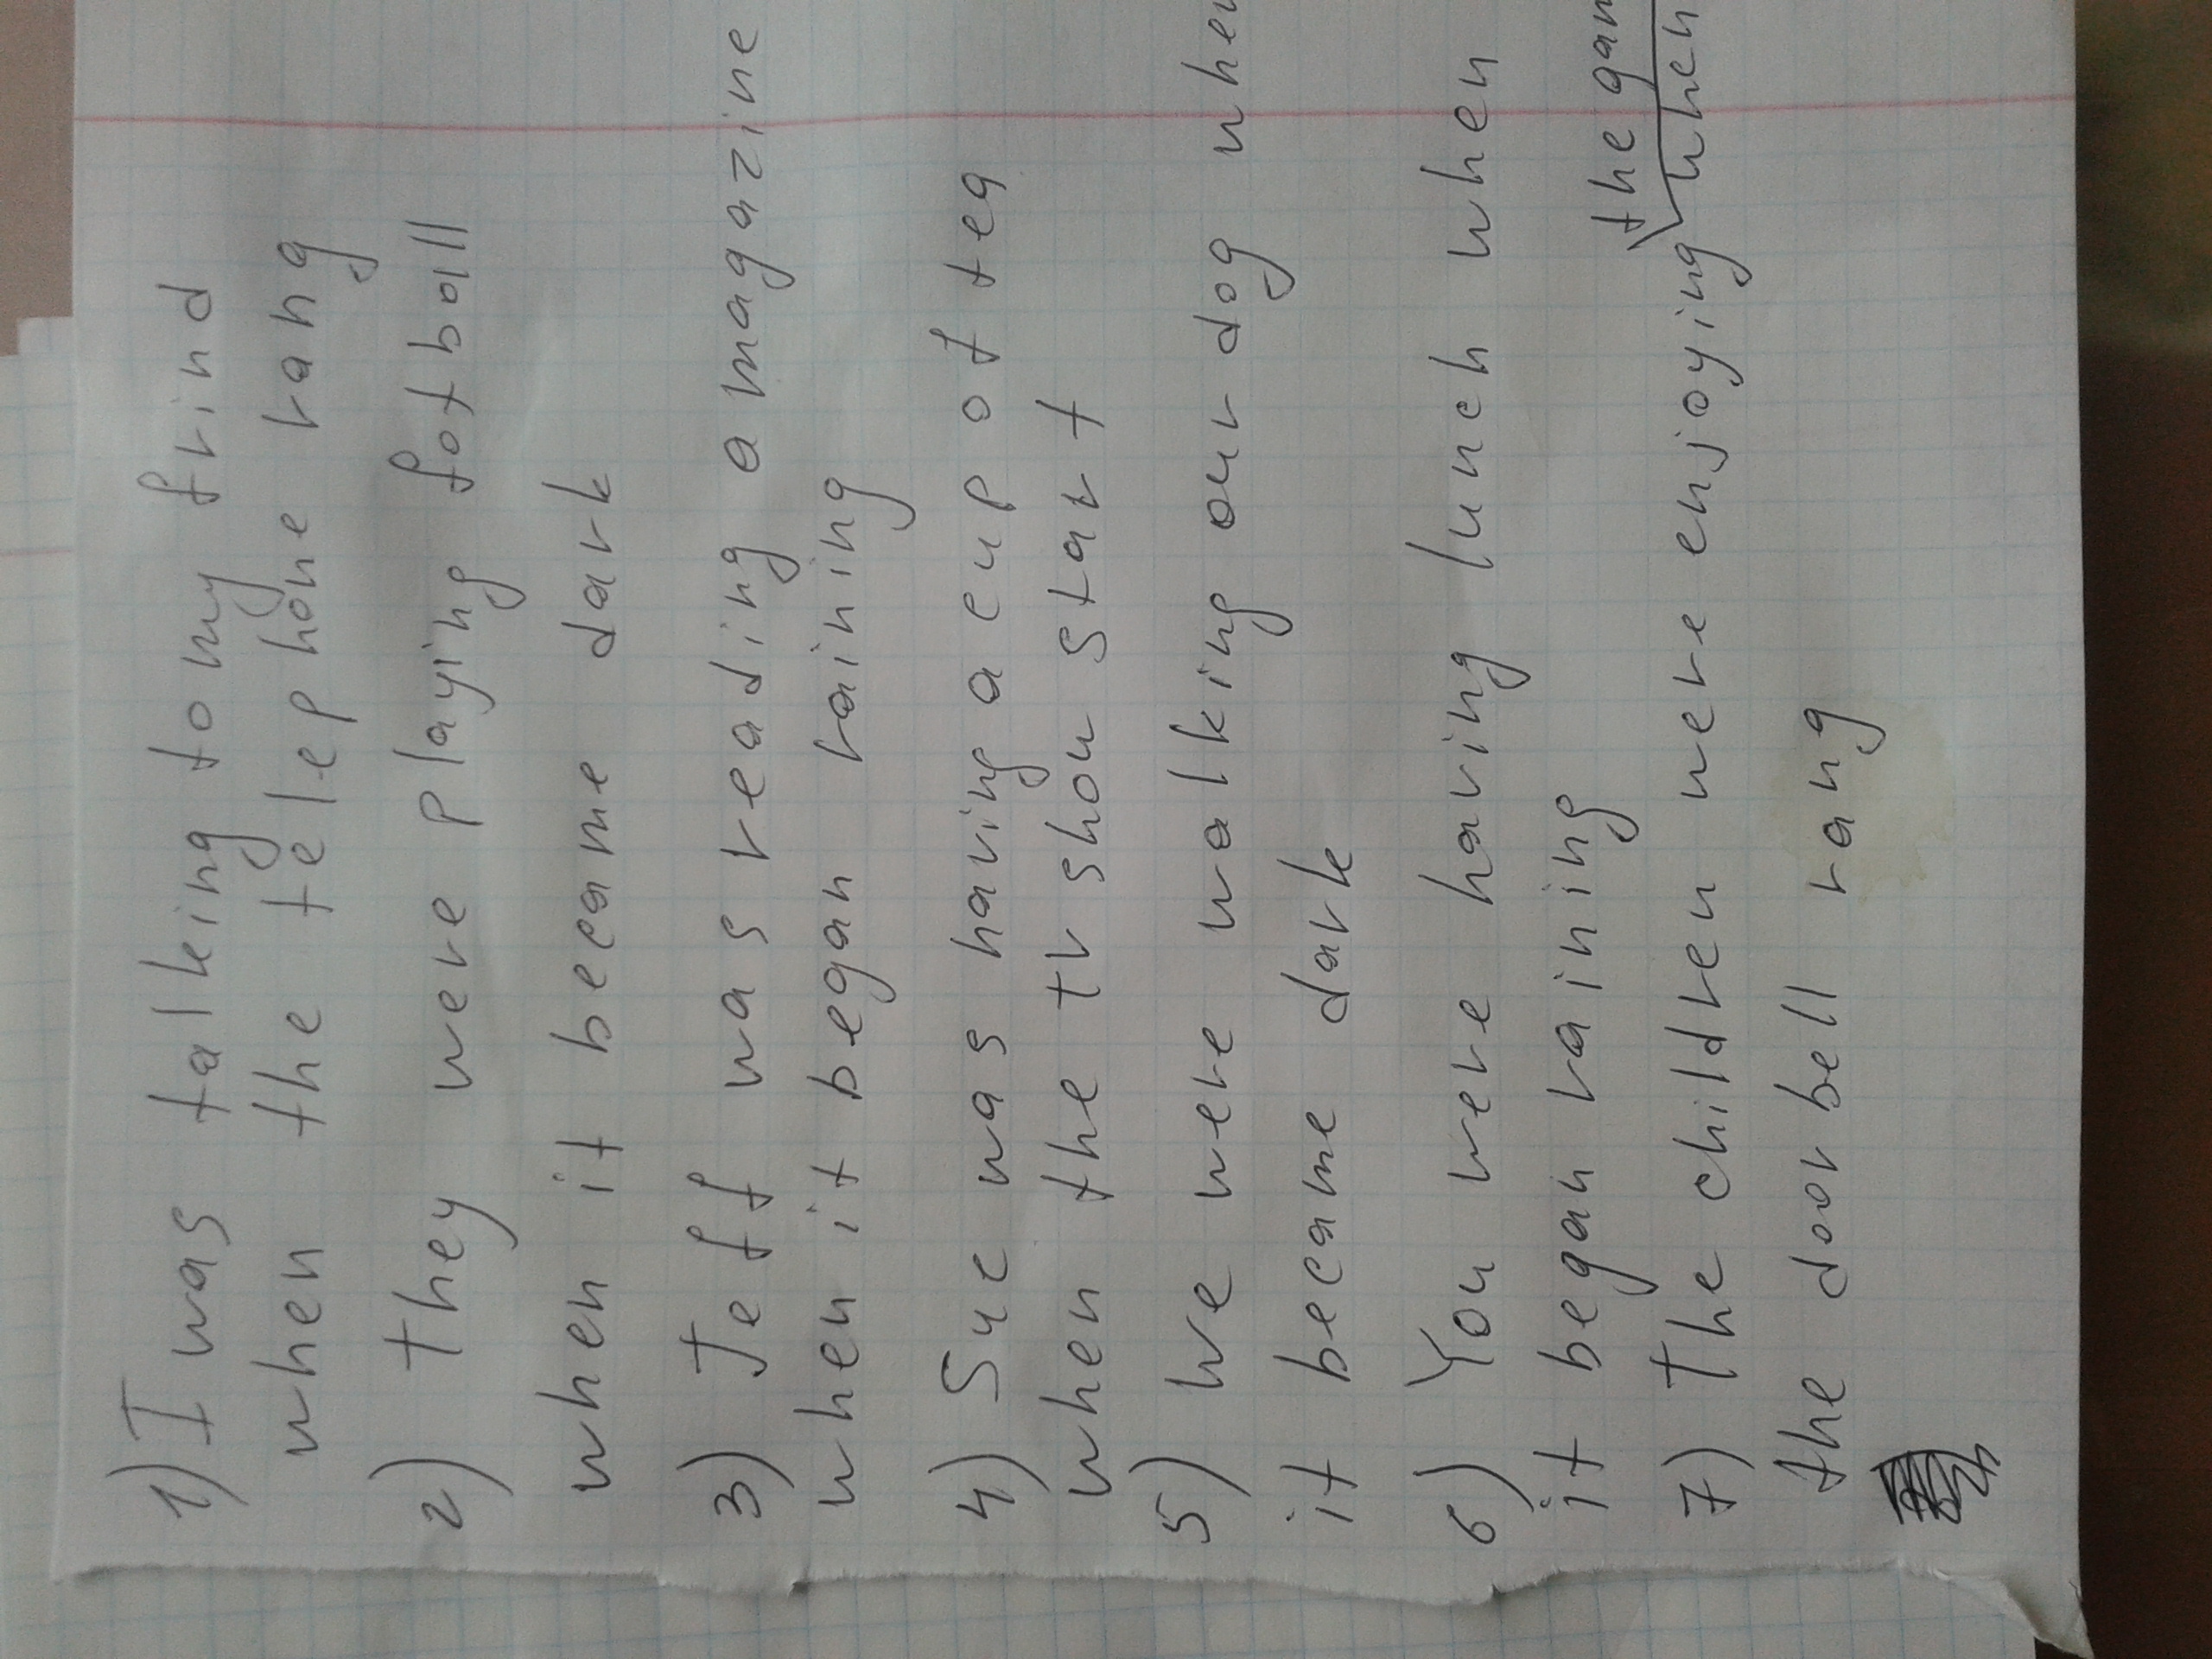 1) I was talking to my frind
when the telephone rang
2) they were playing fotball
when it became dark
3) Jeff was reading a magazine
when it began raining
4) Sue was having a cup of tea
when the tv show start
5) we were walking our dog when
it became dark
6) You were having lunch when
it began raining
the gam
7) the children were enjoying when
the door bell rang